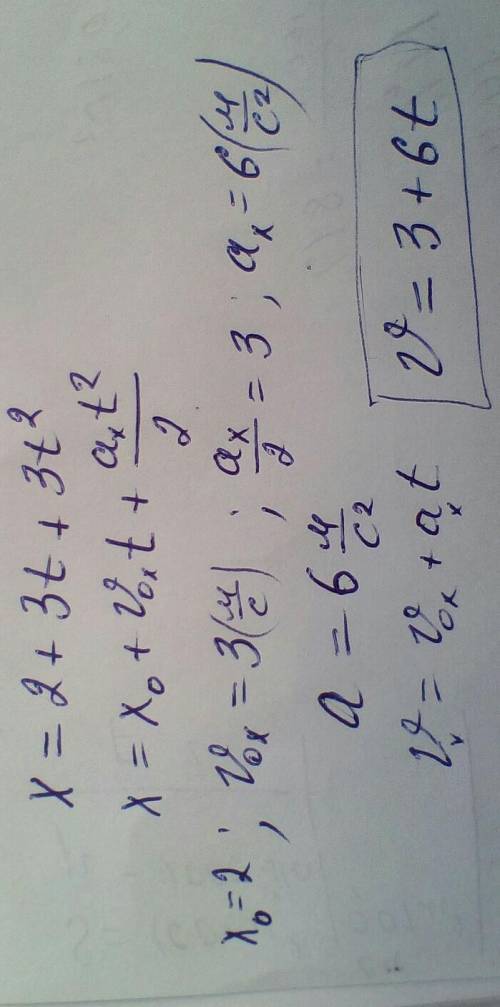 x = 2 + 3t + 3t²
x = x₀ + v₀ₓt + aₓt²/2
x₀ = 2 ; v₀ₓ = 3(м/с) ; aₓ/2 = 3 ; aₓ = 6(м/с²)
a = 6 м/с²
vₓ = v₀ₓ + aₓt
v = 3 + 6t